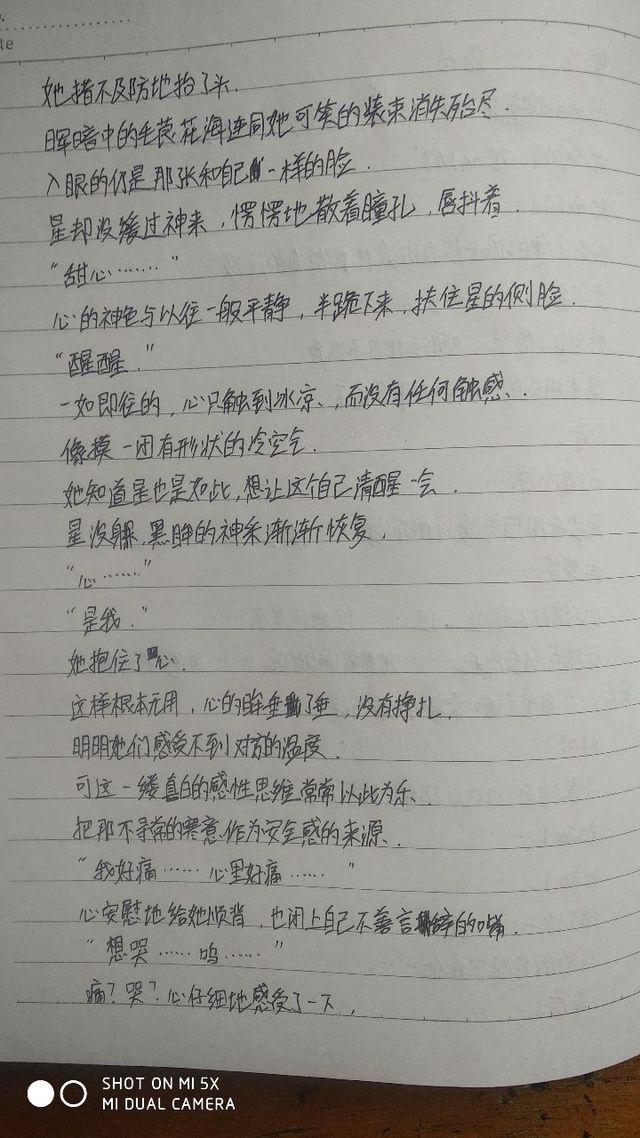 te
她措不及防地抬了头.
晖暗中的毛茛花海连同她可笑的装束消失殆尽.
入眼的仍是那张和自己一样的脸.
星却没缓过神来,愣愣地散着瞳孔,唇抖着.
“甜心……”
心的神色与以往一般平静,半跪下来,扶住星的侧脸.
“醒醒.”
一如即往的,心只触到冰凉,而没有任何触感.
像摸一团有形状的冷空气.
她知道星也是如此,想让这个自己清醒一会.
星没躲,黑眸的神采渐渐恢复.
“心……”
“是我.”
她抱住了心.
这样根本无用,心的眸垂了垂,没有挣扎.
明明她们感受不到对方的温度.
可这一缕直白的感性思维常常以此为乐.
把那不寻常的寒意作为安全感的来源.
“我好痛……心里好痛……”
心安慰地给她顺背,也闭上自己不善言辞的嘴.
“想哭……呜……”
痛?哭?心仔细地感受了一下,
SHOT ON MI 5X
MI DUAL CAMERA